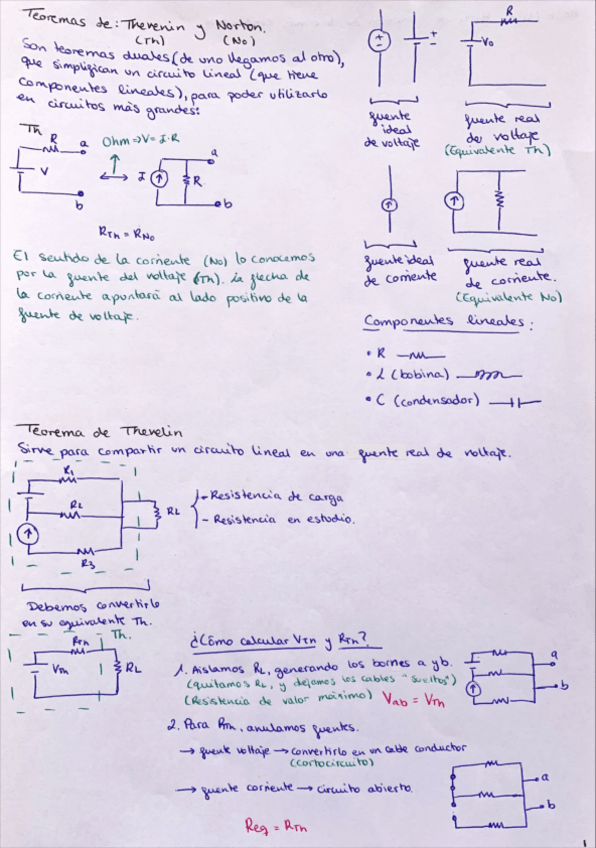 Teoremas de: Thevenin y Norton.
(Th) (No)
Son teoremas duales (de uno llegamos al otro),
que simplifican un circuito lineal (que tiene
componentes lineales), para poder utilizarlo
en circuitos más grandes:
Th
R a
Ohm ⇒ V = I·R
V
b
a
I R
b
RTh = RNo
El sentido de la corriente (No) lo conocemos
por la fuente del voltaje (Th). La flecha de
la corriente apuntará al lado positivo de la
fuente de voltaje.
+
-
+
-
R
Vo
fuente
ideal
de voltaje
fuente real
de voltaje
(Equivalente Th)
fuente ideal
de corriente
fuente real
de corriente.
(Equivalente No)
Componentes lineales:
• R
• L (bobina)
• C (condensador)
Teorema de Thevelin
Sirve para compartir un circuito lineal en una fuente real de voltaje.
R1
RL
R3
RL
- Resistencia de carga
- Resistencia en estudio.
Debemos convertirlo
en su equivalente Th.
RTh Th.
VTh RL
¿Cómo calcular VTh y RTh?
1. Aislamos RL, generando los bornes a y b.
(quitamos RL, y dejamos los cables "sueltos")
(Resistencia de valor máximo) Vab = VTh
a
b
2. Para RTh, anulamos fuentes.
→ fuente voltaje → convertirlo en un cable conductor
(cortocircuito)
→ fuente corriente → circuito abierto.
a
b
Req = RTh
1